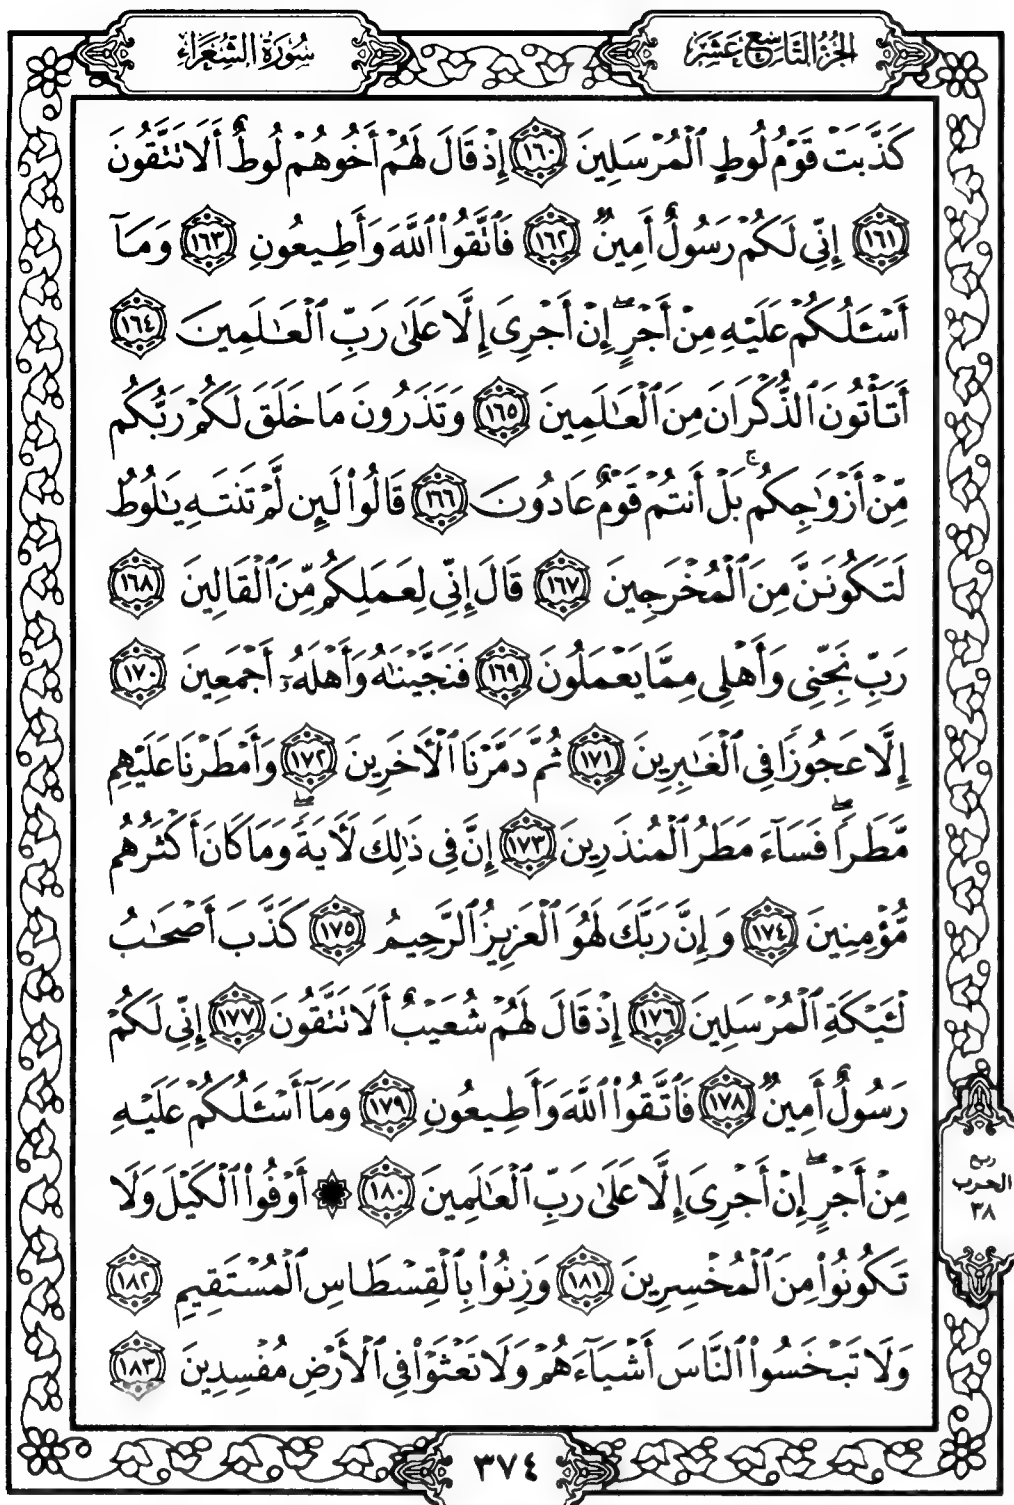 الجزء التاسع عشر
سورة الشعراء
كَذَّبَتْ قَوْمُ لُوطٍ ٱلْمُرْسَلِينَ ١٦٠ إِذْ قَالَ لَهُمْ أَخُوهُمْ لُوطٌ أَلَا تَتَّقُونَ
١٦١ إِنِّي لَكُمْ رَسُولٌ أَمِينٌ ١٦٢ فَٱتَّقُوا۟ ٱللَّهَ وَأَطِيعُونِ ١٦٣ وَمَآ
أَسْـَٔلُكُمْ عَلَيْهِ مِنْ أَجْرٍ ۖ إِنْ أَجْرِىَ إِلَّا عَلَىٰ رَبِّ ٱلْعَـٰلَمِينَ ١٦٤
أَتَأْتُونَ ٱلذُّكْرَانَ مِنَ ٱلْعَـٰلَمِينَ ١٦٥ وَتَذَرُونَ مَا خَلَقَ لَكُمْ رَبُّكُم
مِّنْ أَزْوَٰجِكُم ۚ بَلْ أَنتُمْ قَوْمٌ عَادُونَ ١٦٦ قَالُوا۟ لَئِن لَّمْ تَنتَهِ يَـٰلُوطُ
لَتَكُونَنَّ مِنَ ٱلْمُخْرَجِينَ ١٦٧ قَالَ إِنِّي لِعَمَلِكُم مِّنَ ٱلْقَالِينَ ١٦٨
رَبِّ نَجِّنِى وَأَهْلِى مِمَّا يَعْمَلُونَ ١٦٩ فَنَجَّيْنَـٰهُ وَأَهْلَهُۥٓ أَجْمَعِينَ ١٧٠
إِلَّا عَجُوزًا فِى ٱلْغَـٰبِرِينَ ١٧١ ثُمَّ دَمَّرْنَا ٱلْـَٔاخَرِينَ ١٧٢ وَأَمْطَرْنَا عَلَيْهِم
مَّطَرًا ۖ فَسَآءَ مَطَرُ ٱلْمُنذَرِينَ ١٧٣ إِنَّ فِى ذَٰلِكَ لَـَٔايَةً ۖ وَمَا كَانَ أَكْثَرُهُم
مُّؤْمِنِينَ ١٧٤ وَإِنَّ رَبَّكَ لَهُوَ ٱلْعَزِيزُ ٱلرَّحِيمُ ١٧٥ كَذَّبَ أَصْحَـٰبُ
لْـَٔيْكَةِ ٱلْمُرْسَلِينَ ١٧٦ إِذْ قَالَ لَهُمْ شُعَيْبٌ أَلَا تَتَّقُونَ ١٧٧ إِنِّي لَكُمْ
رَسُولٌ أَمِينٌ ١٧٨ فَٱتَّقُوا۟ ٱللَّهَ وَأَطِيعُونِ ١٧٩ وَمَآ أَسْـَٔلُكُمْ عَلَيْهِ
مِنْ أَجْرٍ ۖ إِنْ أَجْرِىَ إِلَّا عَلَىٰ رَبِّ ٱلْعَـٰلَمِينَ ١٨٠ ۞ أَوْفُوا۟ ٱلْكَيْلَ وَلَا
تَكُونُوا۟ مِنَ ٱلْمُخْسِرِينَ ١٨١ وَزِنُوا۟ بِٱلْقِسْطَاسِ ٱلْمُسْتَقِيمِ ١٨٢
وَلَا تَبْخَسُوا۟ ٱلنَّاسَ أَشْيَآءَهُمْ وَلَا تَعْثَوْا۟ فِى ٱلْأَرْضِ مُفْسِدِينَ ١٨٣
ربع
الحزب
٣٨
٣٧٤